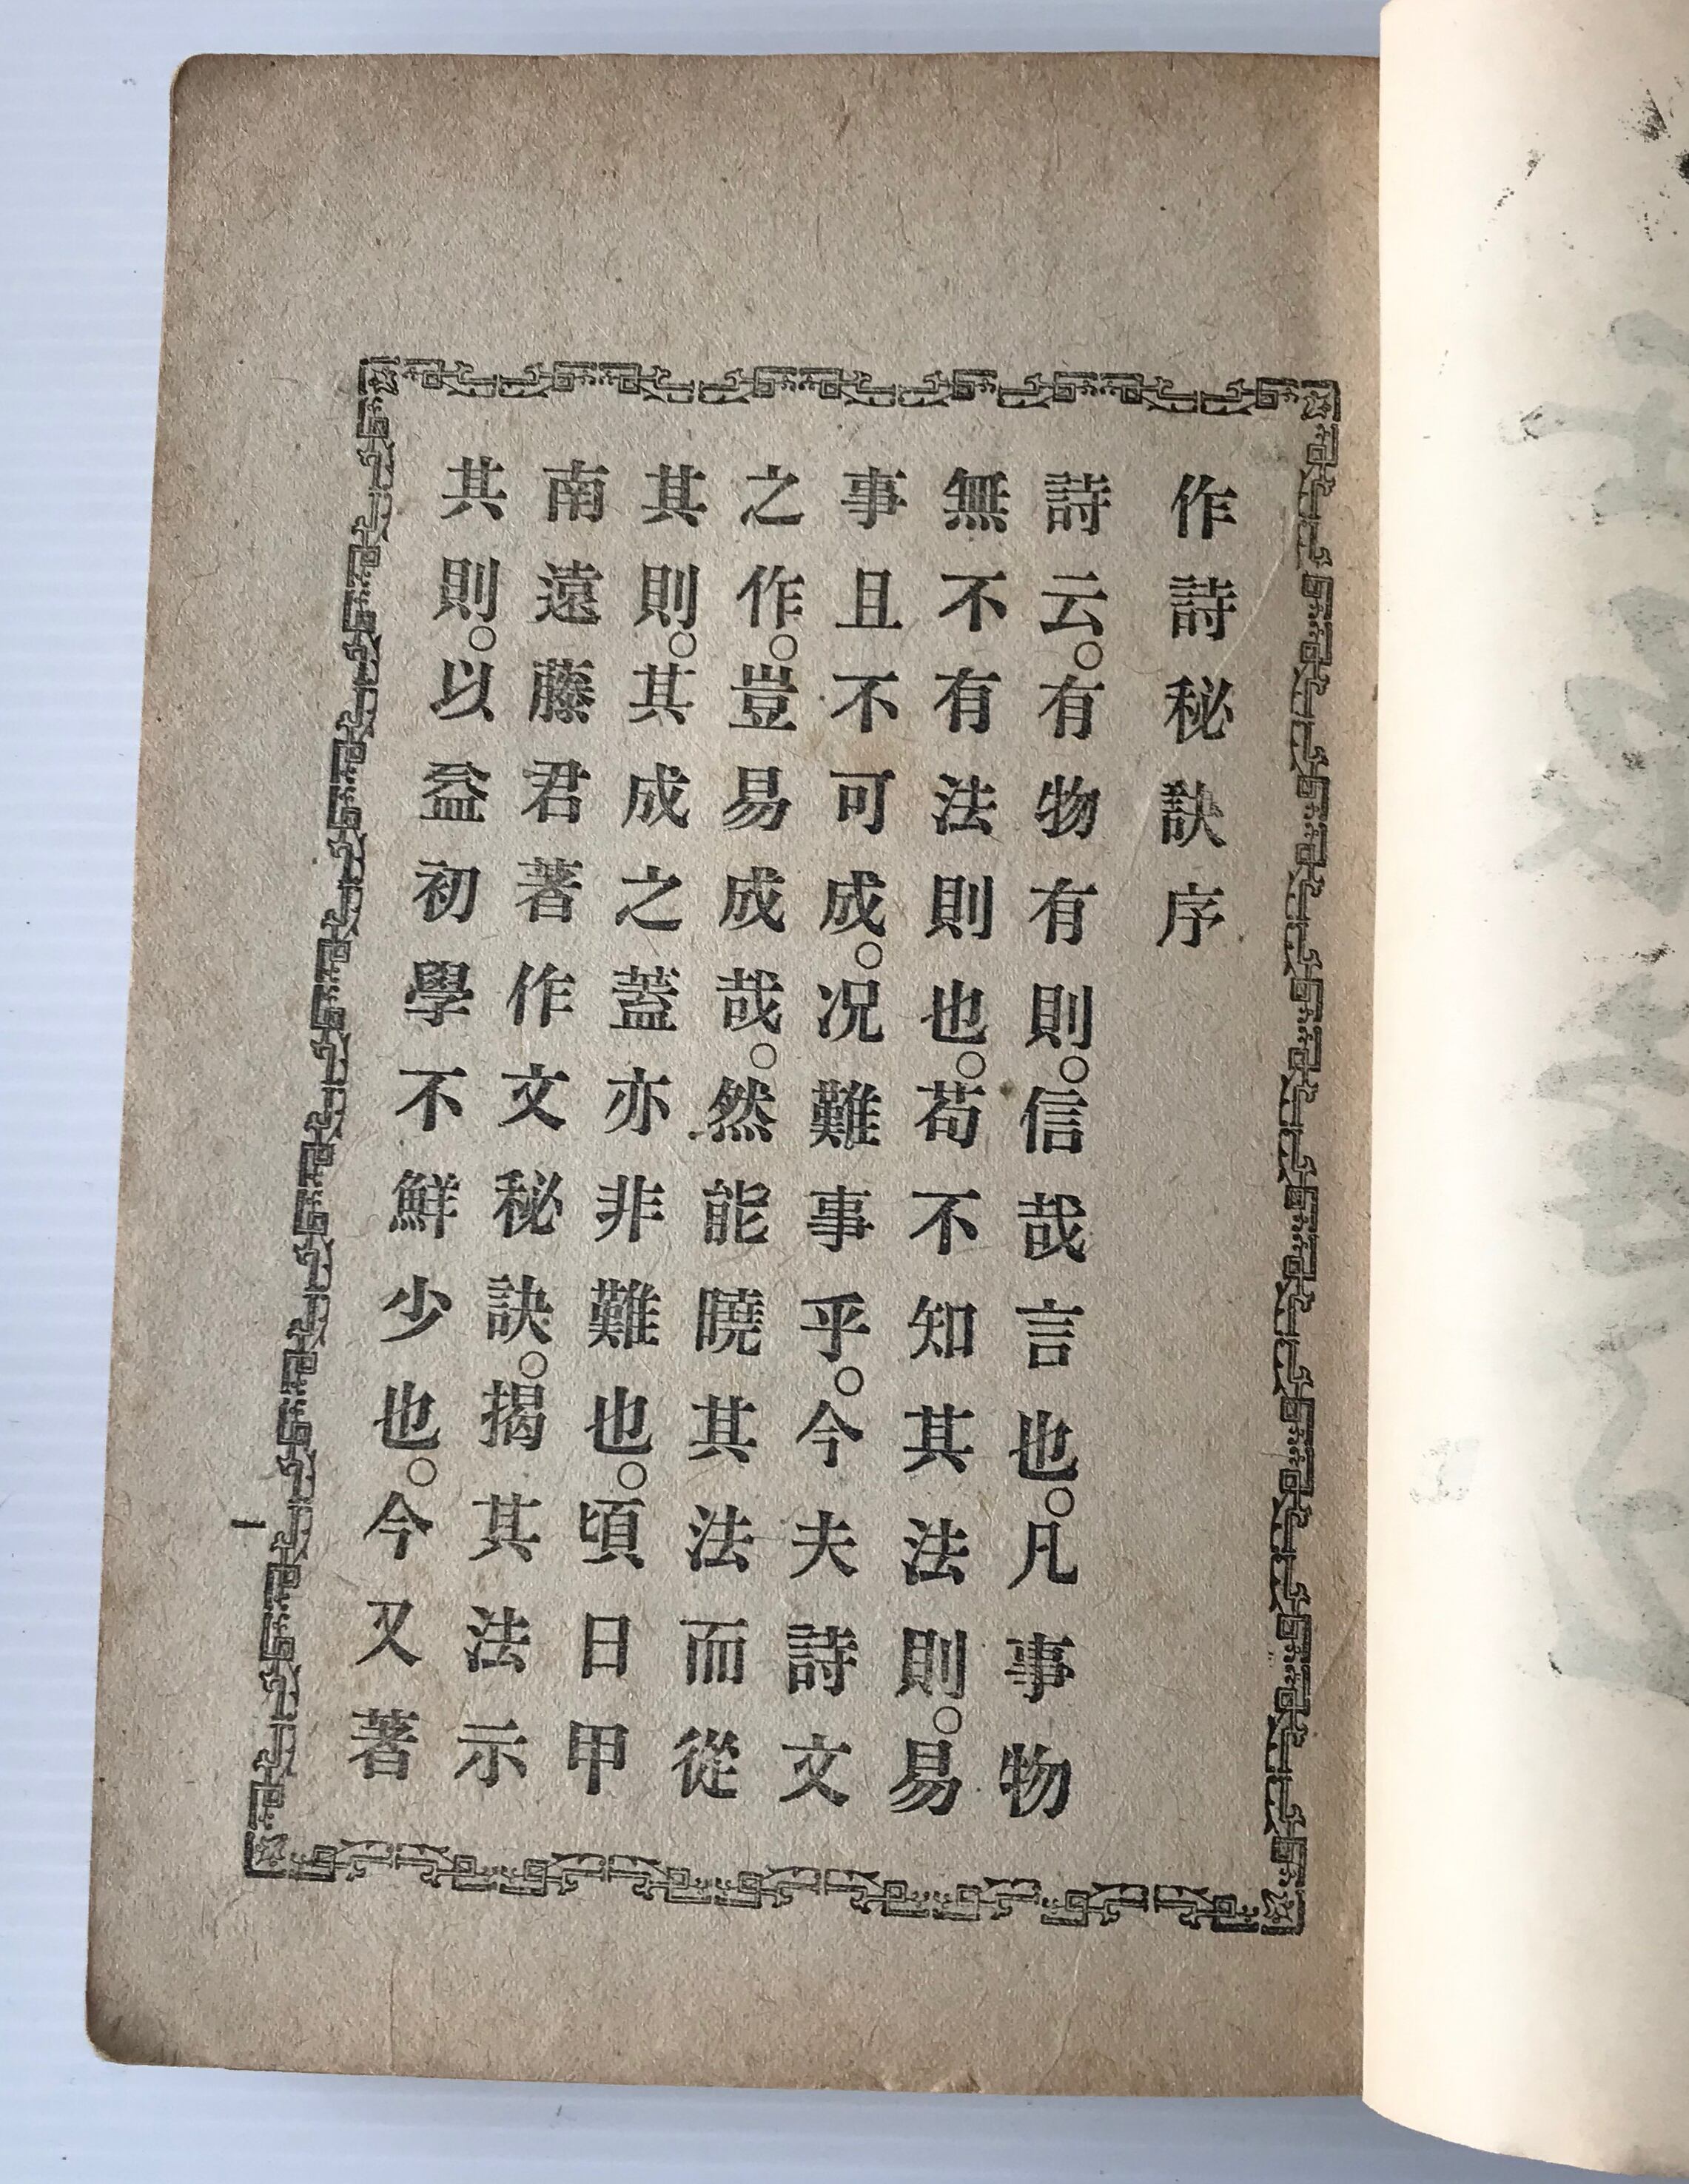 作詩秘訣序
詩云。有物有則。信哉言也。凡事物
無不有法則也。苟不知其法則。易
事且不可成。况難事乎。今夫詩文
之作。豈易成哉。然能曉其法而從
其則。其成之蓋亦非難也。頃日甲
南遠藤君著作文秘訣。揭其法示
其則。以益初學不鮮少也。今又著
一